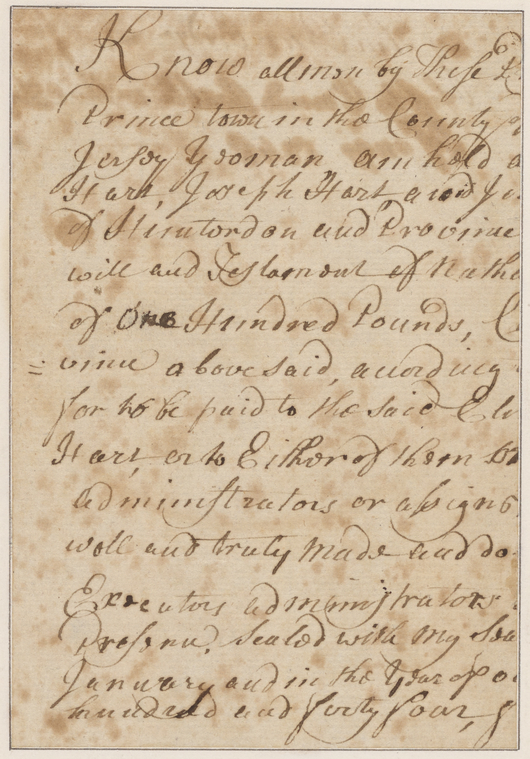 Know all men by These
Prince town in the County
Jersey Yeoman am held
Hart, Joseph Hart, and
of Huntordon and Province
will and Testament of Natha
of One Hundred Pounds,
vince above said, according
for to be paid to the said
Hart, or to Either of them
administrators or assigns
well and truly made and do
Executors administrators
Presents. Sealed with my Sea
January and in the Year of o
hundred and forty four,